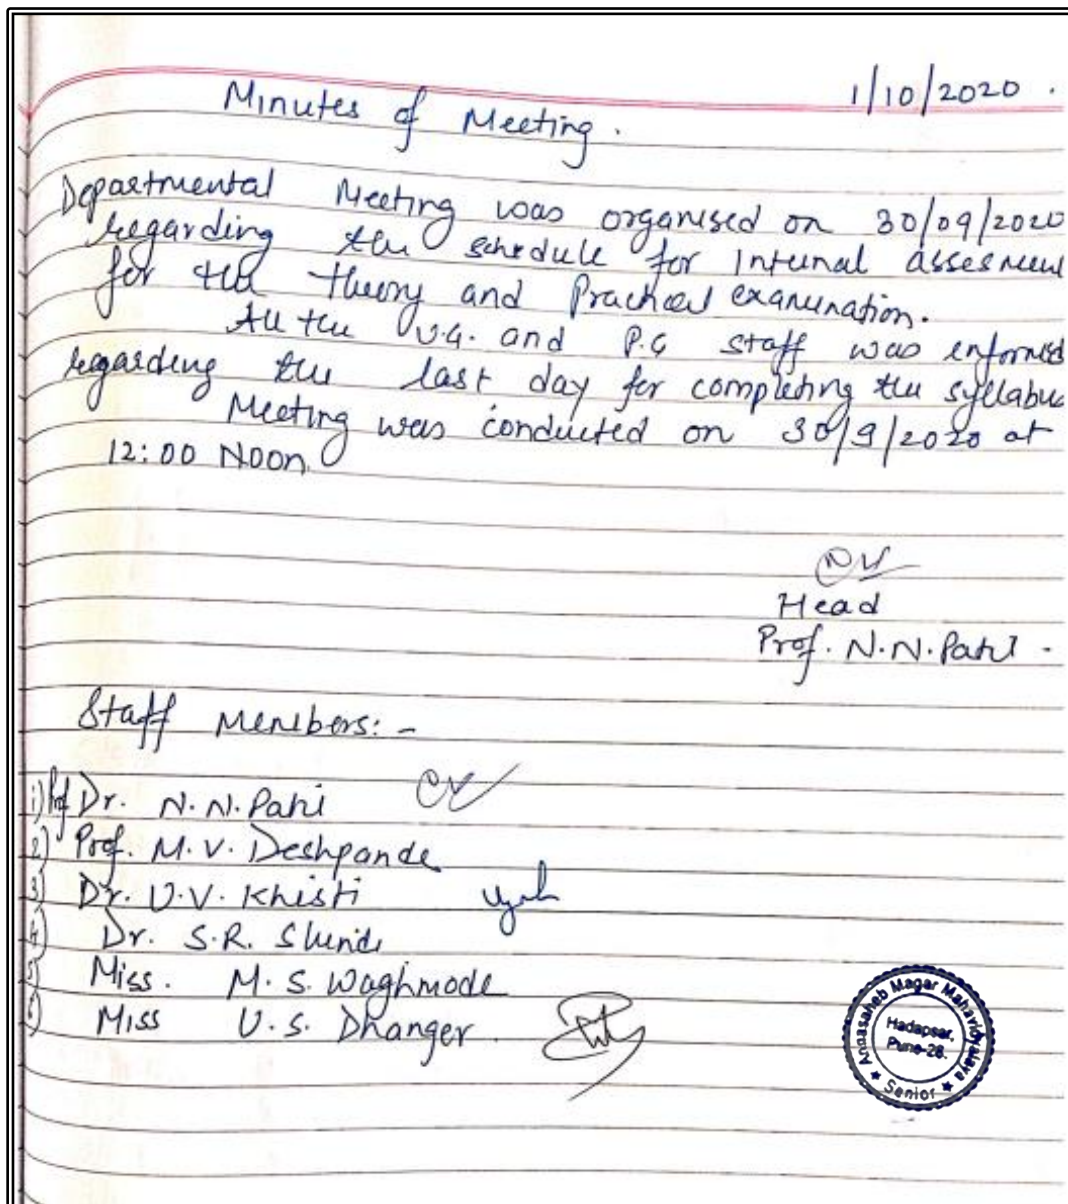 1/10/2020 .
Minutes of Meeting .
Departmental Meeting was organised on 30/09/2020
regarding the schedule for Internal assesment
for the theory and Practical examination.
All the U.G. and P.G staff was informed
regarding the last day for completing the syllabus
Meeting was conducted on 30/9/2020 at
12:00 Noon.
Head
Prof. N.N. Patil .
Staff Members: -
1) Prof Dr. N. N. Patil
2) Prof. M. V. Deshpande
3) Dr. U.V. Khisti
4) Dr. S.R. Shinde
5) Miss. M. S. Waghmode
6) Miss U.S. Dhanger .
Annasaheb Magar Mahavidyalaya
Hadapsar,
Pune-28.
★ Senior ★